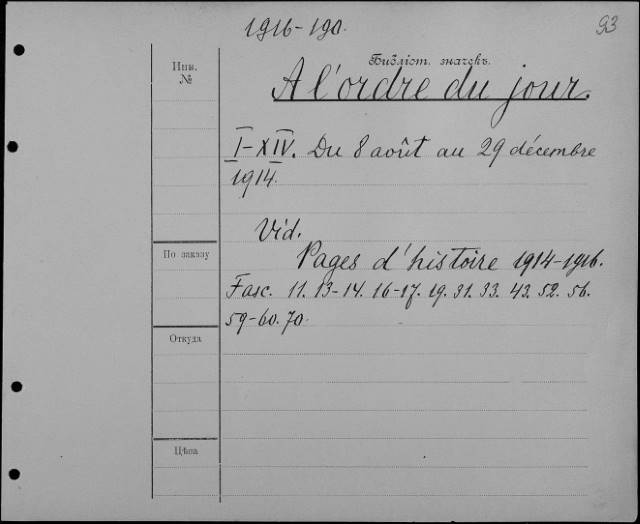 1916-190.
93
Библіот. значекъ.
Инв.
№
A l'ordre du jour.
I-XIV. Du 8 août au 29 décembre
1914.
Vid.
По заказу
Pages d'histoire 1914-1916.
Fasc. 11. 13-14. 16-17. 19. 31. 33. 43. 52. 56.
59-60. 70
Откуда
Цѣна